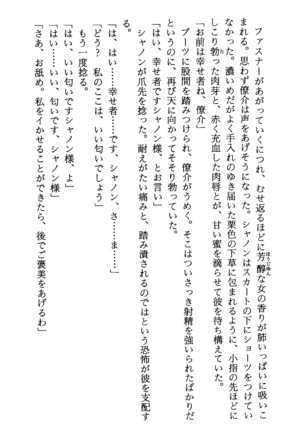 ファスナーがあがっていくにつれ、むせ返るほどに芳醇な女の香りが肺いっぱいに吸いこ
まれる。思わず僚介は声をあげそうになった。シャノンはスカートの下にショーツをつけてい
なかった。濃いめだがよく手入れのゆき届いた栗色の下草に包まれるように、小指の先ほどに
しこり勃った肉芽と、赤く充血した肉唇とが、甘い蜜を滴らせて彼を待ち構えていた。
「お前は幸せ者ね、僚介」
ブーツに股間を踏みつけられ、僚介がうめく。そこはついさっき射精を強いられたばかりだ
というのに、再び天に向かってそそり勃っていた。
「はい、幸せ者ですシャノン様、とお言い」
シャノンが爪先を捻った。耐えがたい痛みと、踏み潰されるのではという恐怖が彼を支配す
る。
「は、はい……幸せ者……です、シャノン、さ……ま……」
「どう?　私のここは、いい匂いでしょう」
もう一度捻る。
「はい、いい匂いですシャノン様、よ」
「はい……いい、匂いです、シャノン様」
「さあ、お舐め。私をイかせることができたら、後でご褒美をあげるわ」